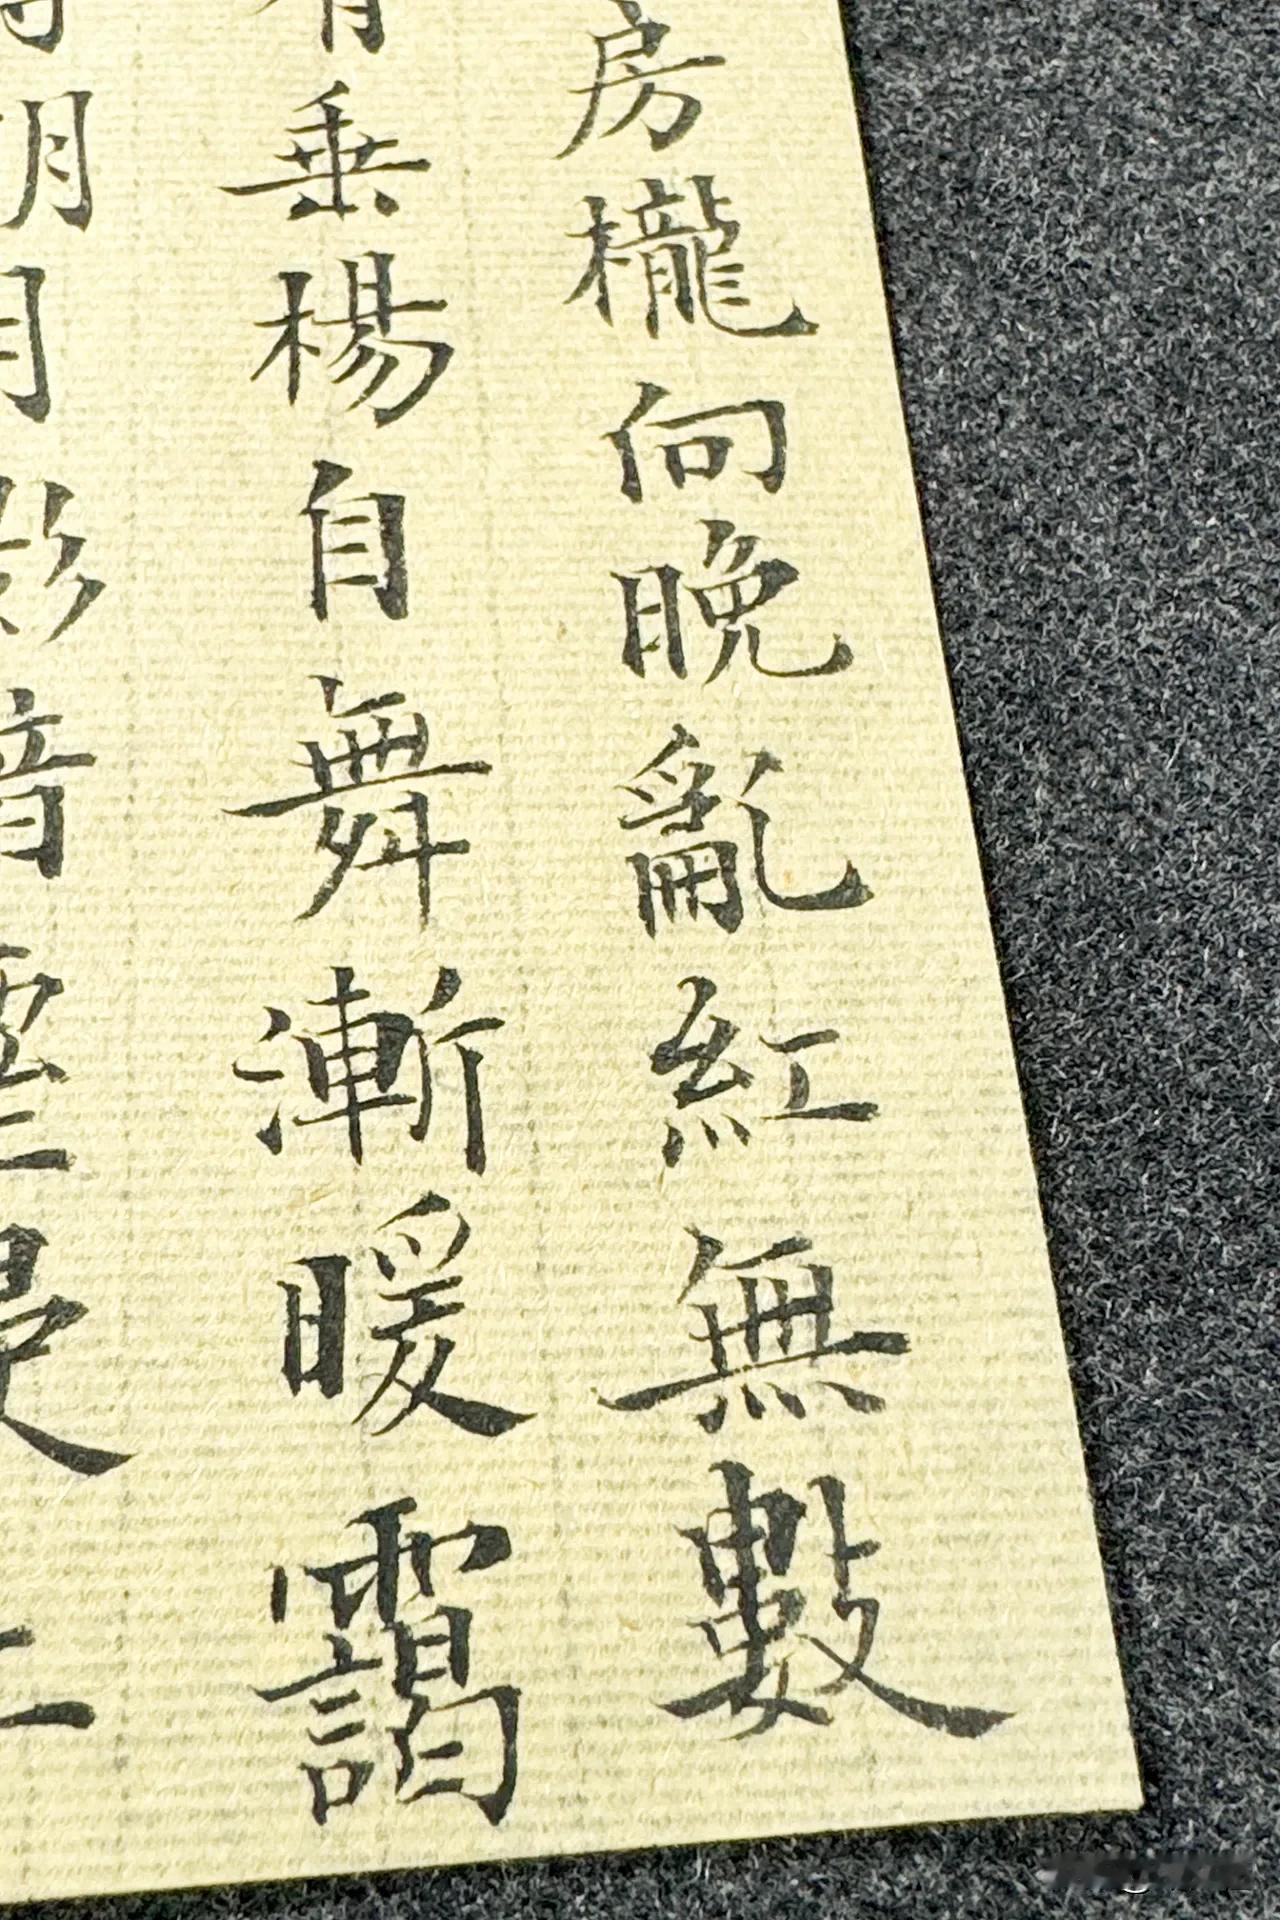 房櫳向晚亂紅無數
有垂楊自舞漸暖靄
明月影暗